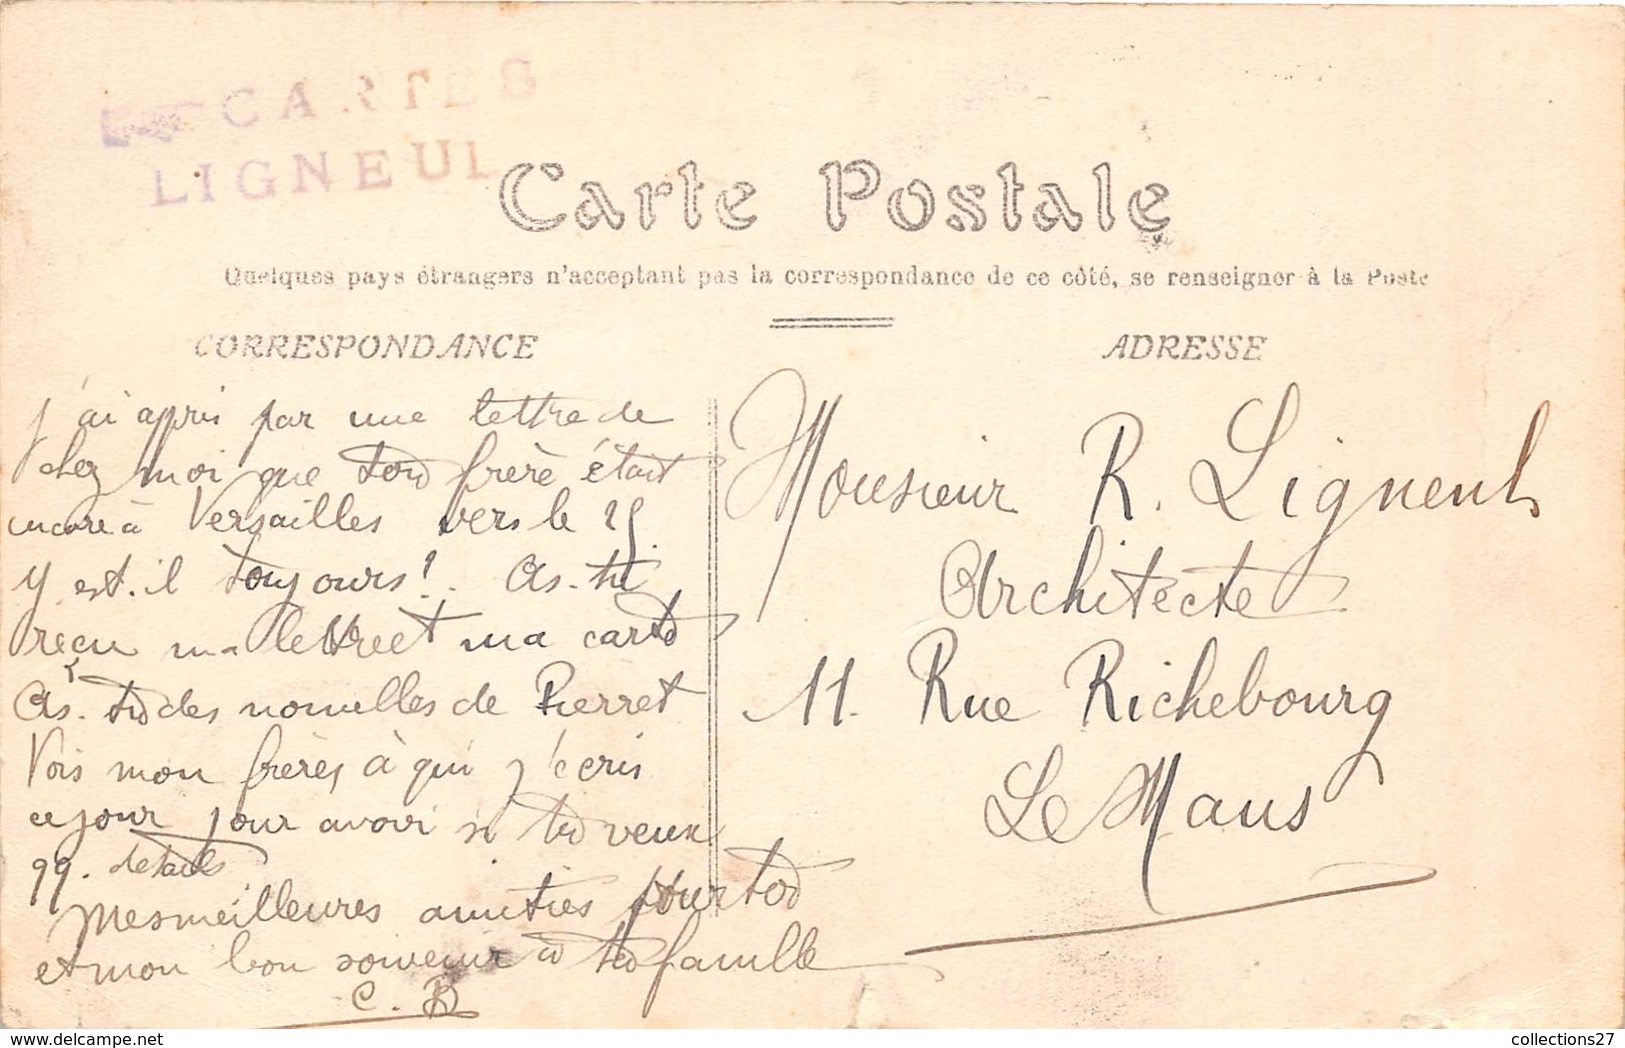 CARTES
LIGNEUL
Carte Postale
Quelques pays étrangers n'acceptant pas la correspondance de ce côté, se renseigner à la Poste
CORRESPONDANCE
j'ai appris par une lettre de
chez moi que ton frère était
encore à Versailles vers le 25.
Y est-il toujours! As-tu
reçu ma lettre et ma carte
As-tu des nouvelles de Pierret
Vois mon frère, à qui j'écris
ce jour pour avoir si tu veux
qq. détails
Mes meilleures amitiés pour toi
et mon bon souvenir à ta famille
C. B
ADRESSE
Monsieur R. Ligneul
Architecte
11. Rue Richebourg
Le Mans
collections27